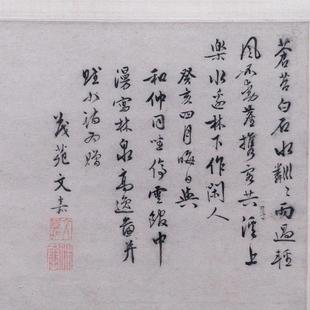 蒼苔白石水粼々雨過輕
風不塵攜客共溪上
樂水邊林下作閑人
癸亥四月晦日與
和仲同坐停雲館中
漫寫林泉高逸圖并
賦小詩為贈
茂苑文嘉